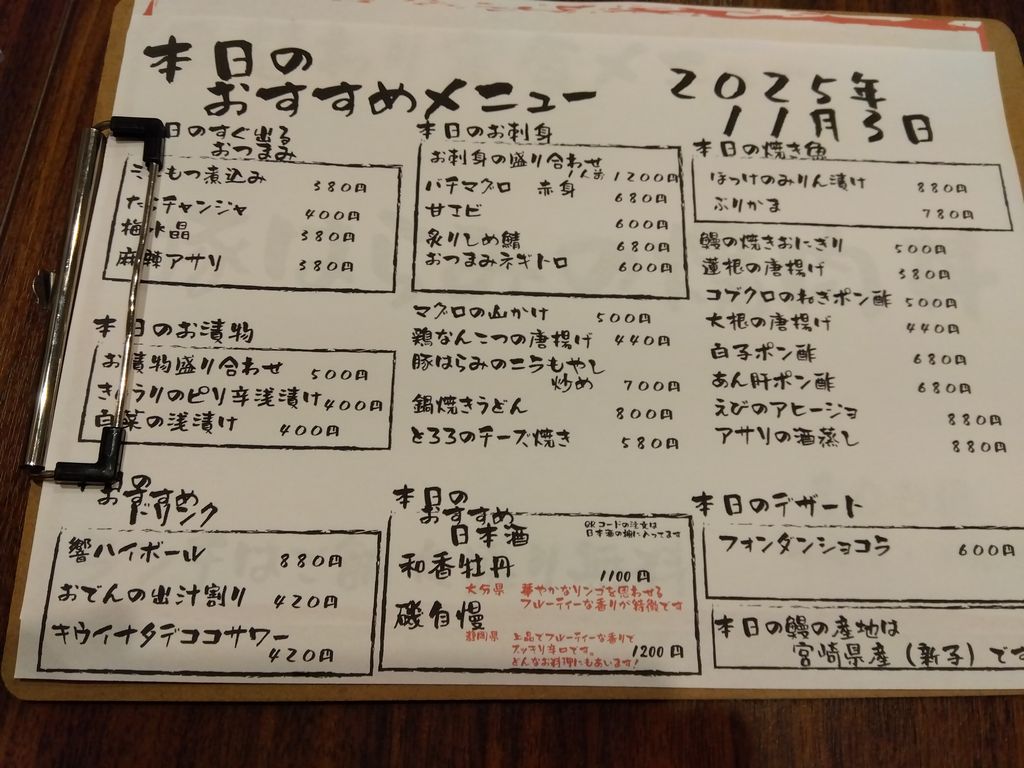 本日の
おすすめメニュー
2025年
11月3日
日のすぐ出る
おつまみ
もつ煮込み 380円
チャンジャ 400円
梅水晶 380円
麻辣アサリ 380円
本日のお漬物
お漬物盛り合わせ 500円
きゅうりのピリ辛浅漬け 400円
白菜の浅漬け 400円
本日のお刺身
お刺身の盛り合わせ
1人前 1200円
バチマグロ 赤身 680円
甘エビ 600円
炙りしめ鯖 680円
おつまみネギトロ 600円
マグロの山かけ 500円
鶏なんこつの唐揚げ 440円
豚はらみのニラもやし
炒め 700円
鍋焼きうどん 800円
とろろのチーズ焼き 580円
本日の焼き魚
ほっけのみりん漬け 880円
ぶりかま 780円
鰻の焼きおにぎり 500円
蓮根の唐揚げ 380円
コブクロのねぎポン酢 500円
大根の唐揚げ 440円
白子ポン酢 680円
あん肝ポン酢 680円
えびのアヒージョ 880円
アサリの酒蒸し 880円
の
おすすめ
ドリンク
響ハイボール 880円
おでんの出汁割り 420円
キウイナタデココサワー
420円
本日の
おすすめ
日本酒
QRコードの注文は
日本酒の欄に入ってます
和香牡丹 1100円
大分県 華やかなリンゴを思わせる
フルーティーな香りが特徴です
磯自慢
静岡県 上品でフルーティーな香りで
スッキリ辛口です。 1200円
どんなお料理にもあいます!
本日のデザート
フォンダンショコラ 600円
本日の鰻の産地は
宮崎県産(新子)です